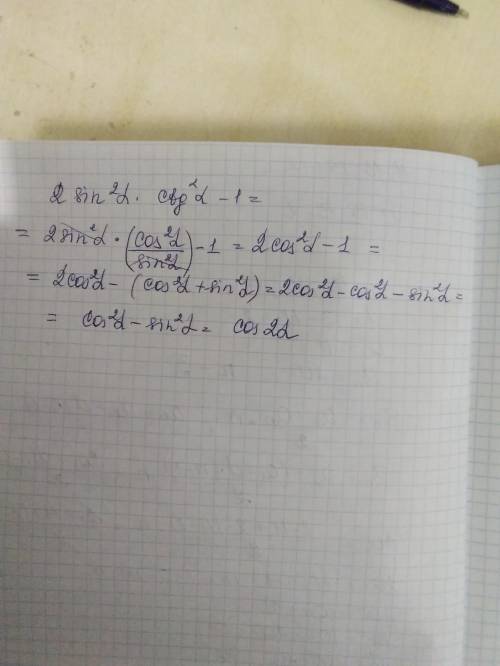 2 sin²α · ctg²α - 1 =
= 2sin²α · (cos²α/sin²α) - 1 = 2cos²α - 1 =
= 2cos²α - (cos²α + sin²α) = 2cos²α - cos²α - sin²α =
= cos²α - sin²α = cos2α